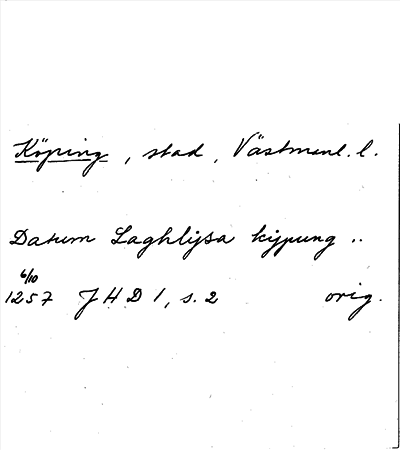 Köping, stad, Västmanl. l.
Datum Laghlijsa kijpung ..
6/10
1257 J H D 1, s. 2 orig.